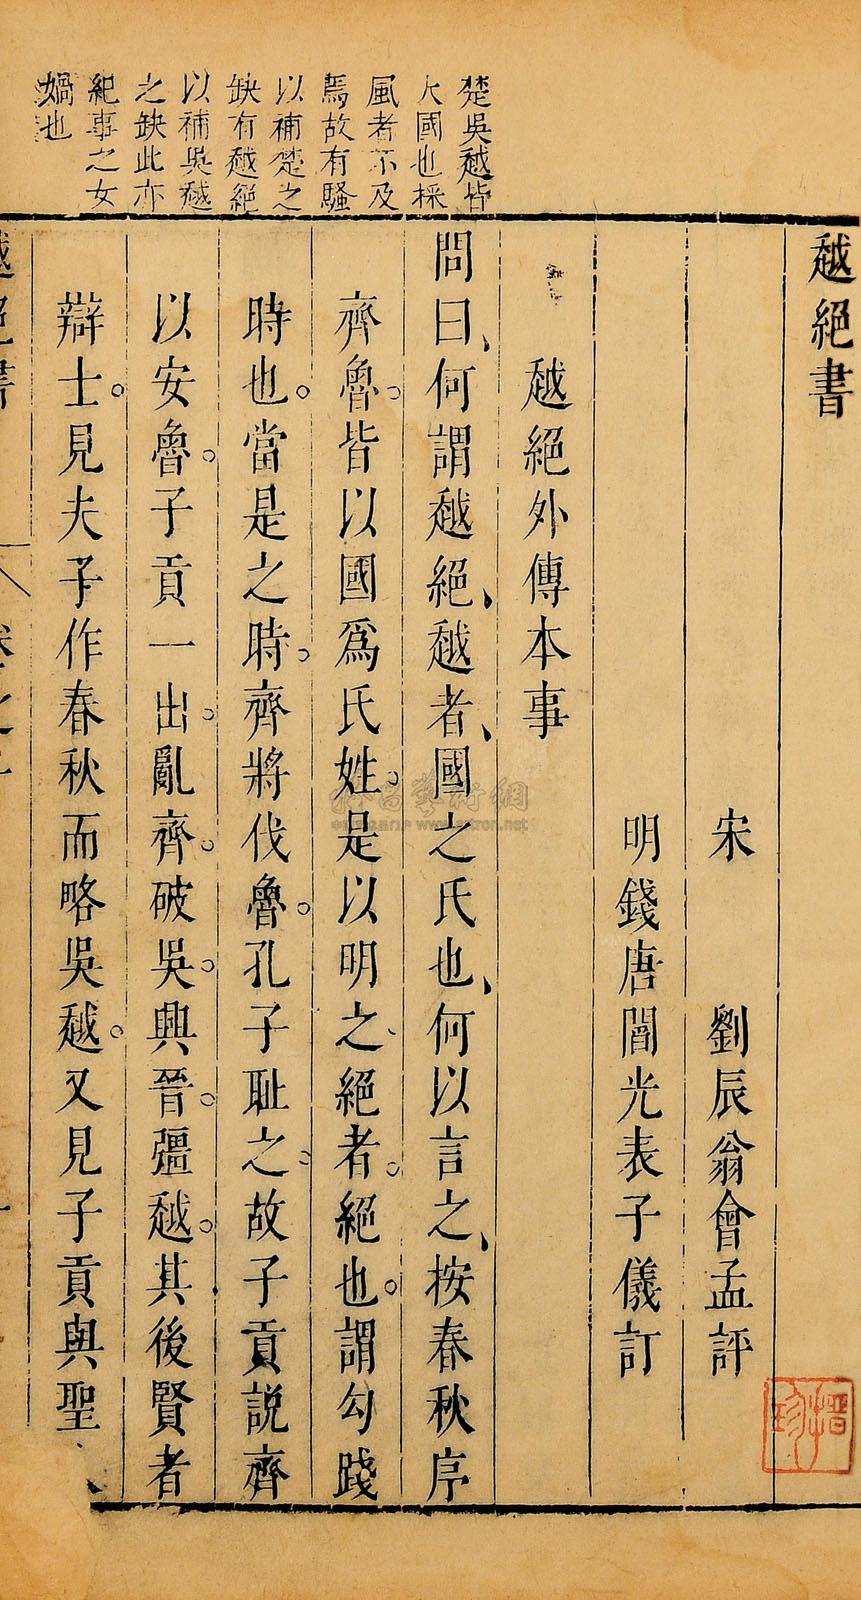 越絕書
宋　劉辰翁會孟評
明錢唐閻光表子儀訂
越絕外傳本事
問曰、何謂越絕、越者、國之氏也、何以言之、按春秋序
齊魯。皆以國爲氏姓。是以明之、絕者。絕也。謂勾踐
時也。當是之時。齊將伐魯。孔子耻之。故子貢説齊
以安魯。子貢一出。亂齊。破吳。興晉。彊越。其後賢者
辯士。見夫子作春秋而略吳越。又見子貢與聖
楚吳越皆
大國也採
風者不及
焉故有騷
以補楚之
缺有越絕
以補吳越
之缺此亦
紀事之女
媧也
越絕書